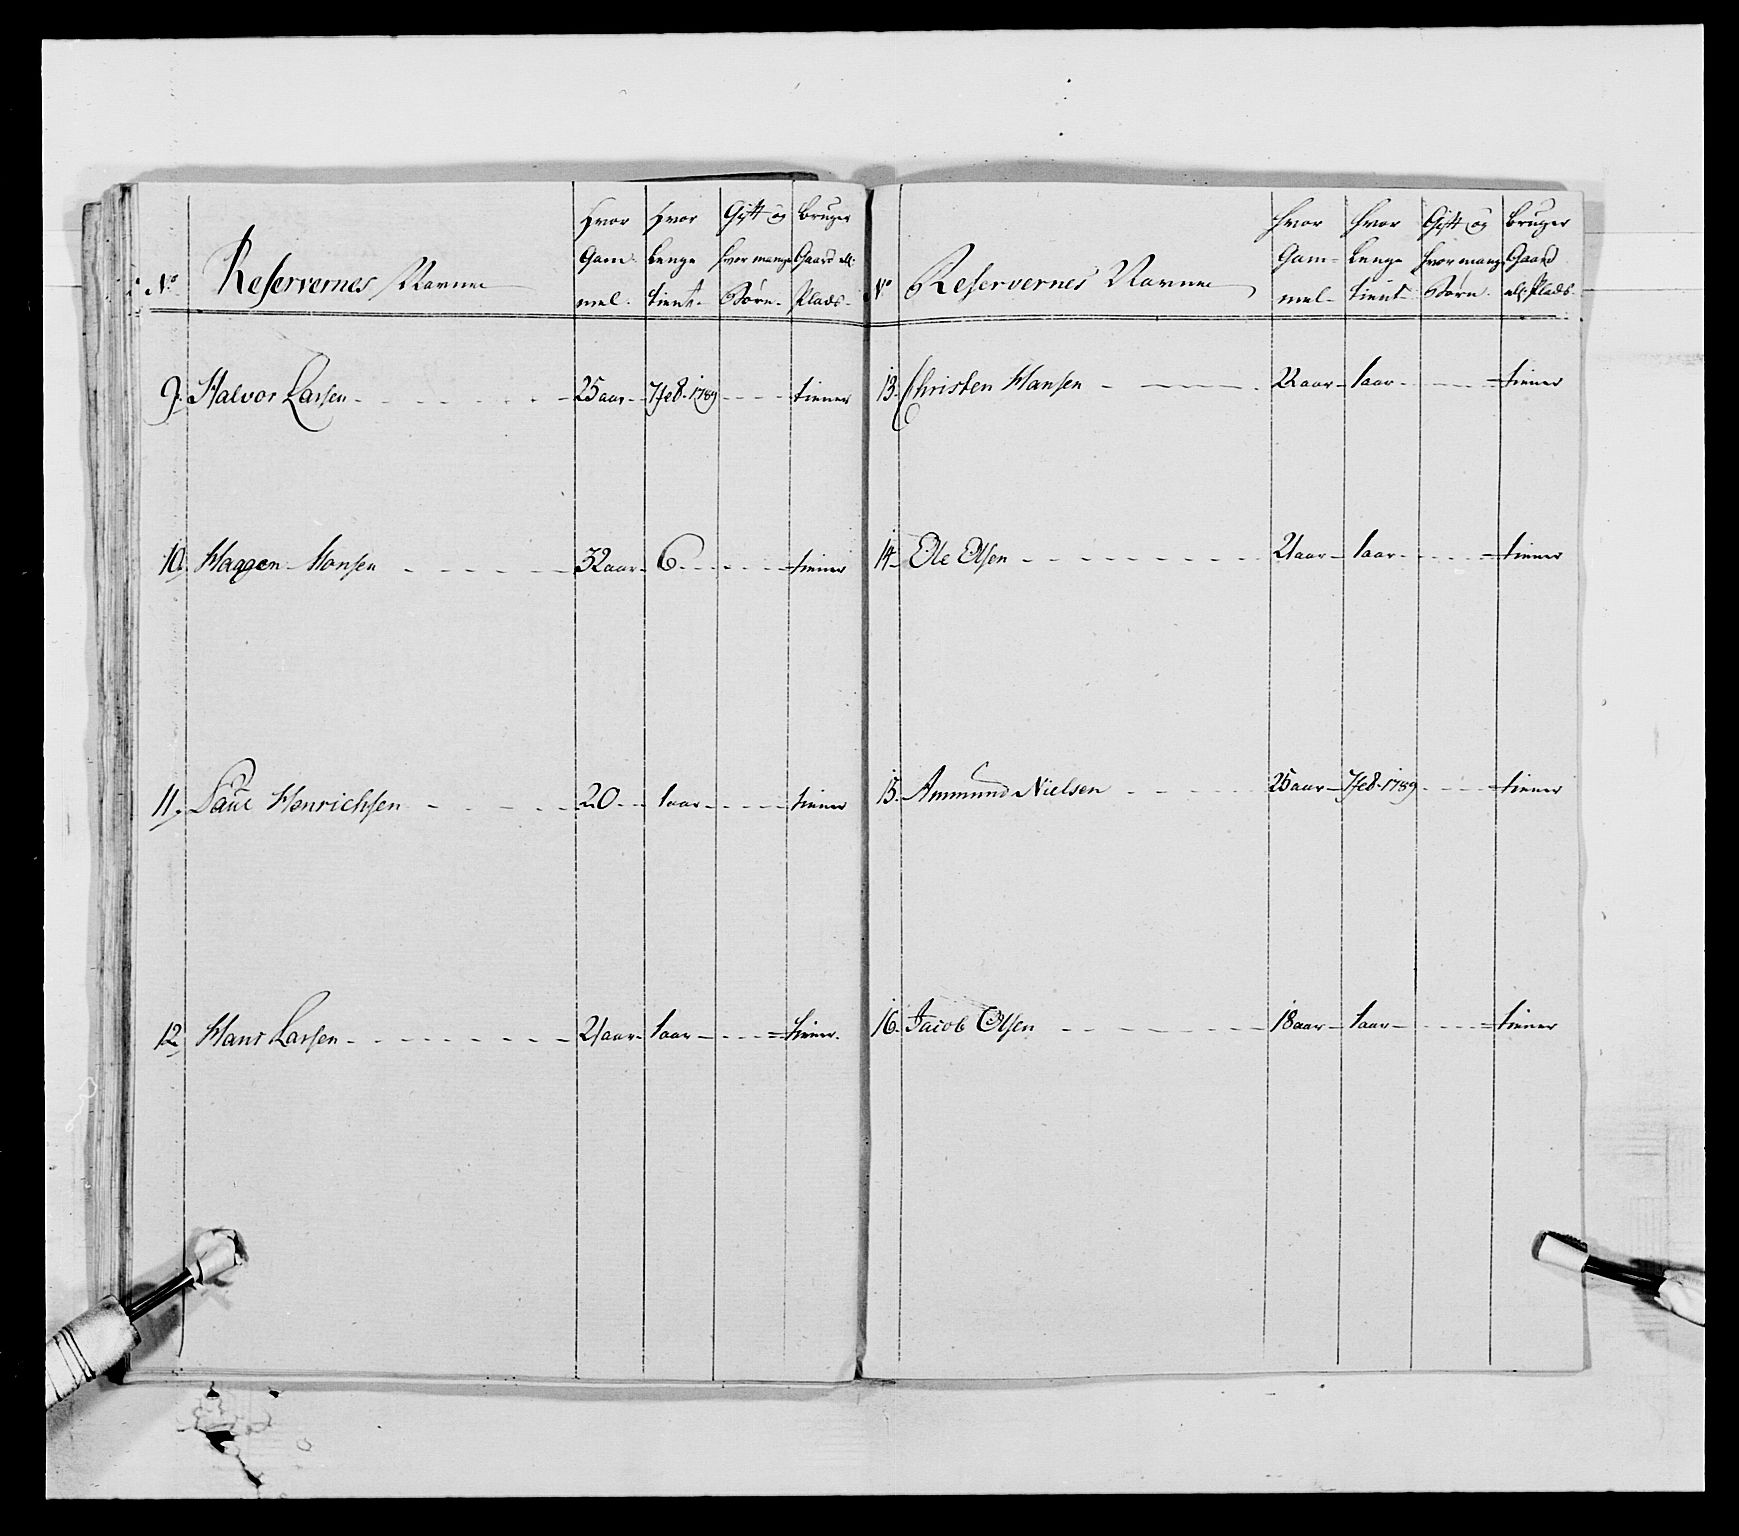 No Reservernes Navne Hvor Gammel. Hvor Lenge tient. Gift og hvor mange Børn. Bruger Gaard ell. Plads.
9. Halvor Larsen 25 aar 7 feb. 1789 tiener
10. Haagen Hansen 32 aar 6 tiener
11. Paul Henrichsen 20 1 aar tiener
12. Hans Larsen 21 aar 1 aar tiener
No Reservernes Navne Hvor Gammel. Hvor Lenge tient Gift og hvor mange Børn. Bruger Gaard ell Plads.
13. Christen Hansen 22 aar 1 aar tiener
14. Ole Olsen 21 aar 1 aar tiener
15. Ammund Nielsen 25 aar 7 feb. 1789 tiener
16. Jacob Olsen 18 aar 1 aar tiener